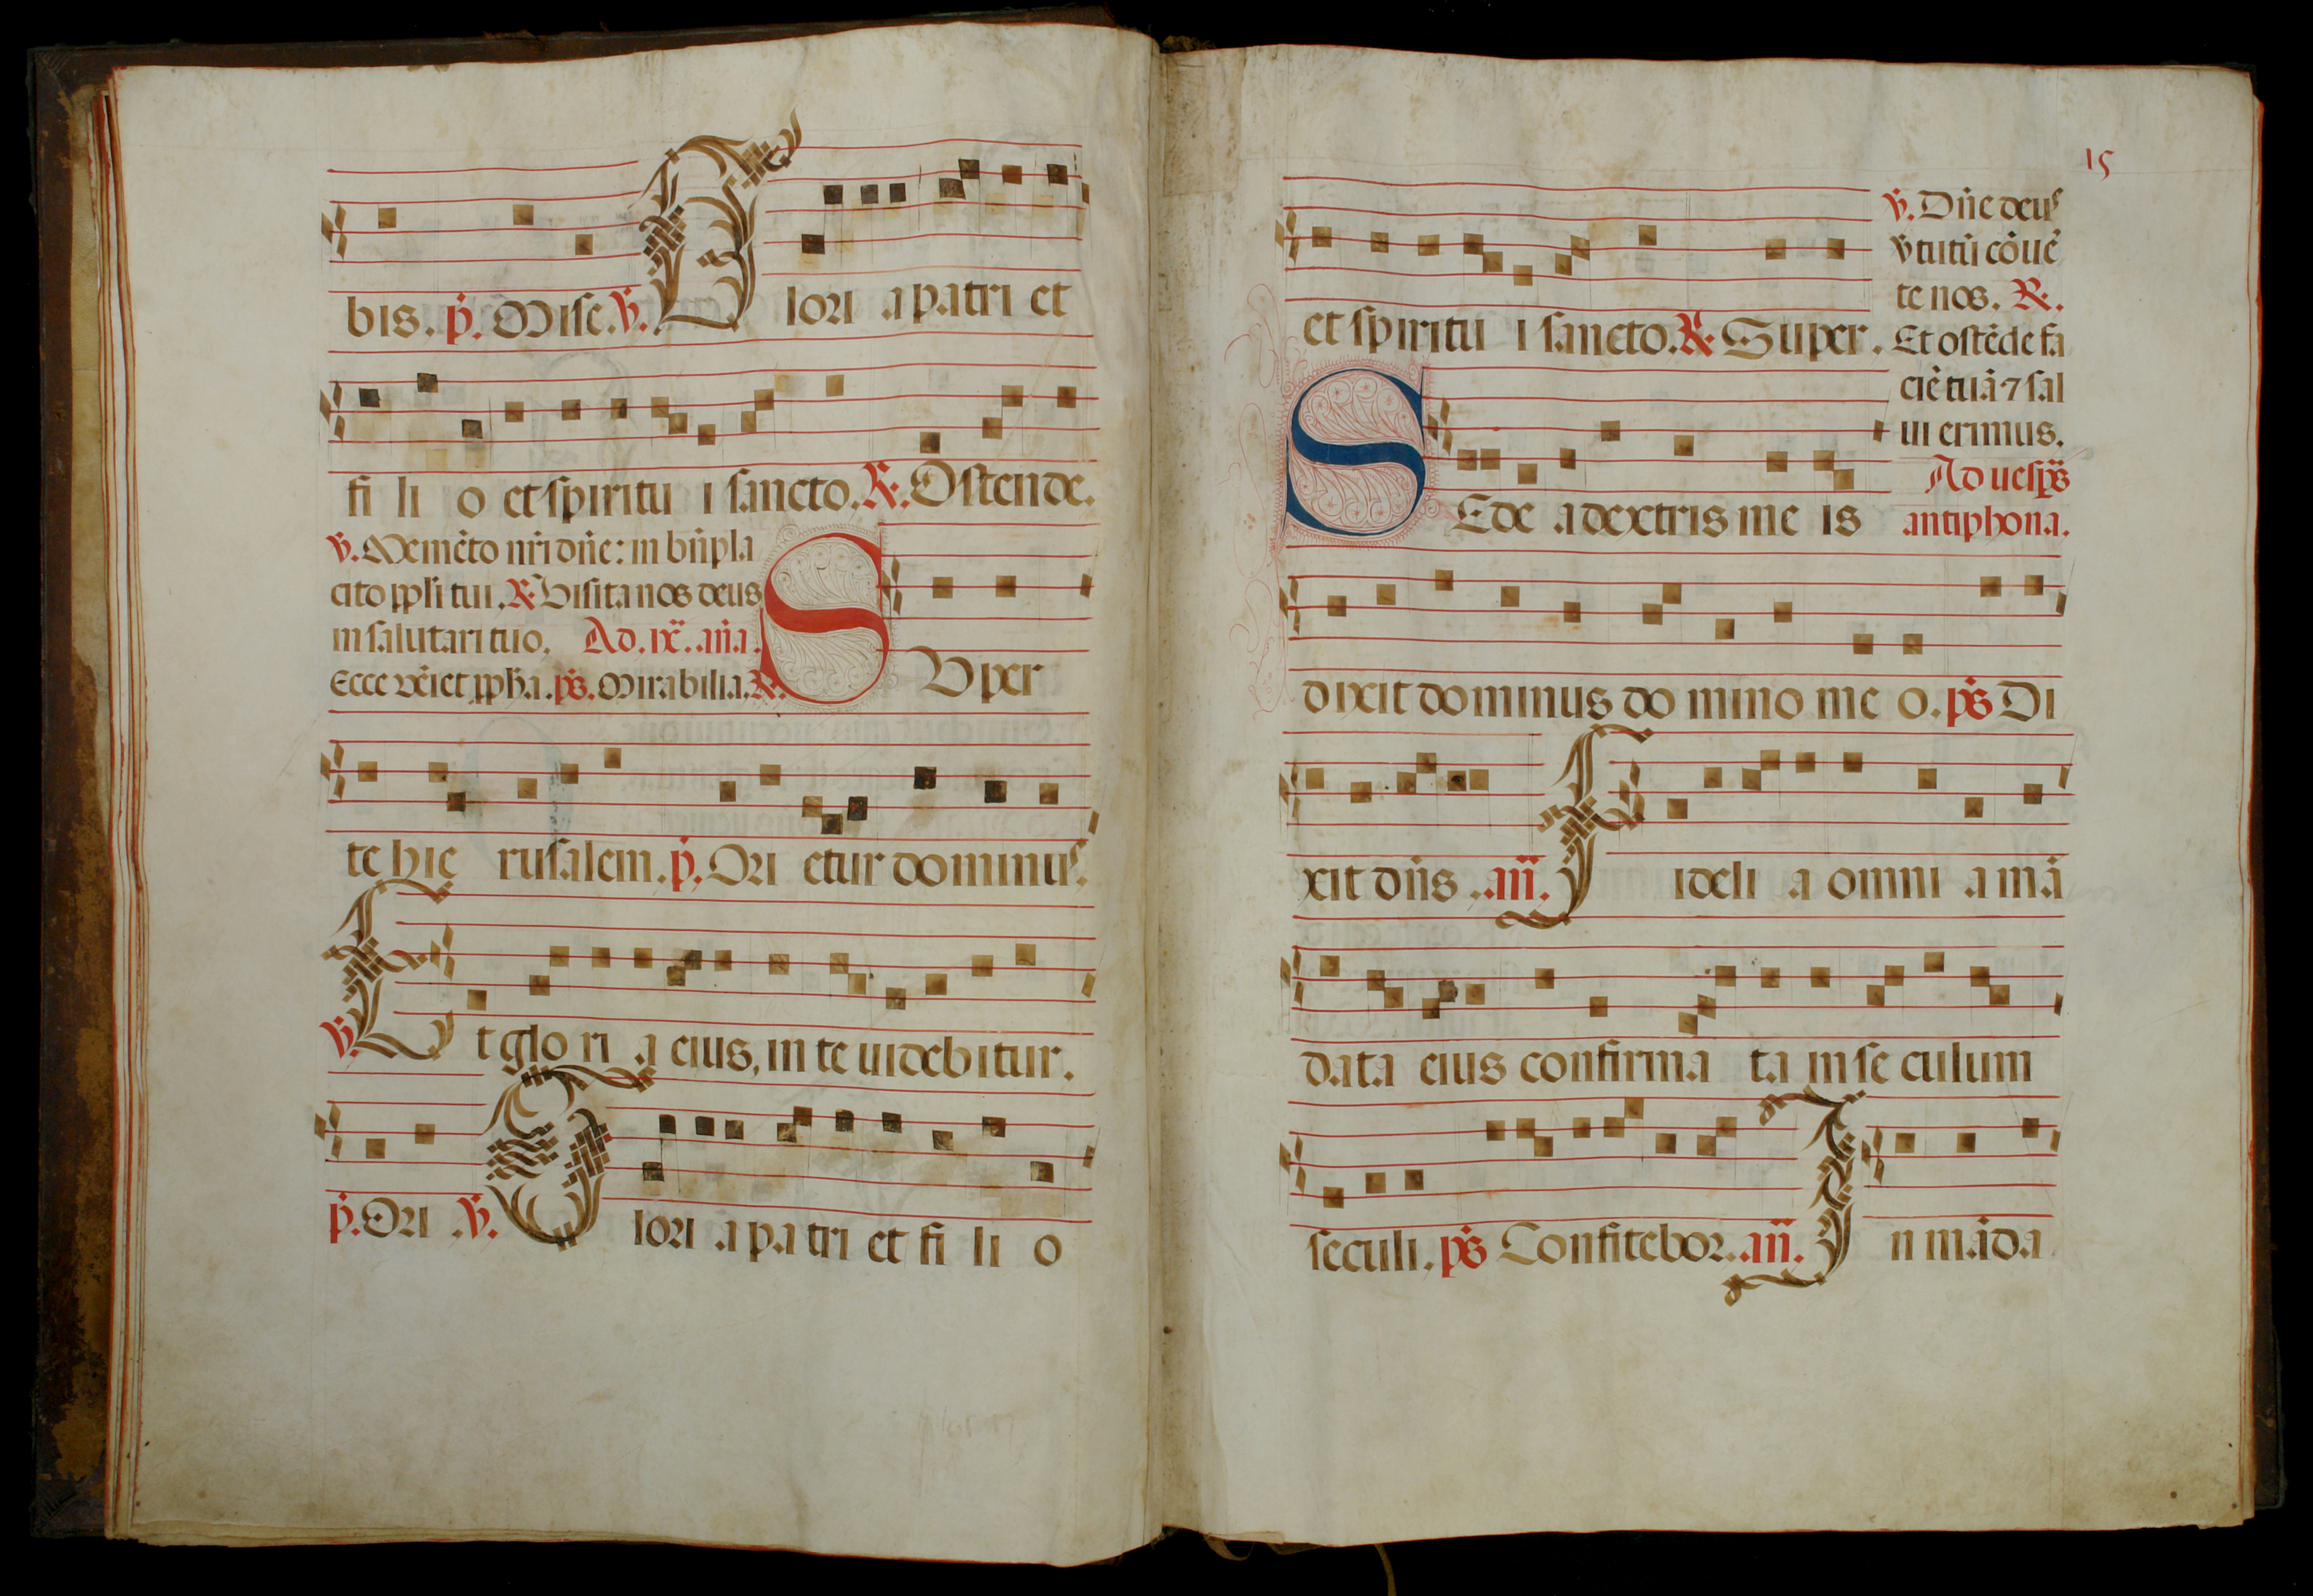 bis. p̃. Mise. ꝟ. Glori a patri et
fi li o et spiritu i sancto. ℟. Ostende.
ꝟ. Memẽto nr̃i dñe: in bñpla
cito pp̃li tui. ℟. Visita nos deus
in salutari tuo. Ad .ix. an̄a.
Ecce vẽiet pp̃ħa. ps̃. Mirabilia. ℟.
SVper
te hie rusalem. p̃. Ori etur dominus.
ꝟ. Et glo ri a eius, in te uidebitur.
p̃. Ori .ꝟ. Glori a pa tri et fi li o
15
et spiritu i sancto. ℟. Super.
ꝟ. Dñe deus
ꝟtutũ cõuẽ
te nos. ℟.
Et ostẽde fa
ciẽ tuã ⁊ sal
ui erimus.
Ad uesp̃s
antiphona.
SEde a dextris me is
dixit dominus do mino me o. ps̃ Di
xit dñs .añ. Fideli a omni a mã
data eius confirma ta in se culum
seculi. ps̃ Confitebor. .añ. In mãda